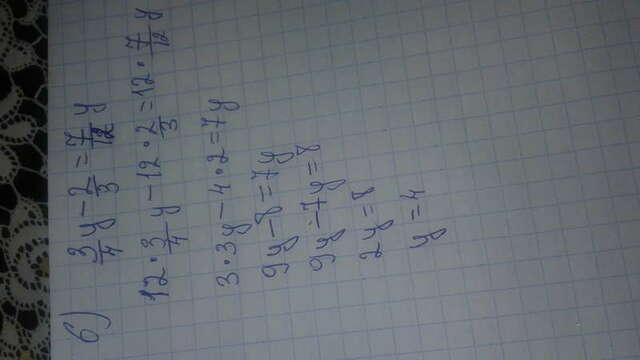 б) 3/4 y - 2/3 = 7/12 y
12 • 3/4 y - 12 • 2/3 = 12 • 7/12 y
3 • 3y - 4 • 2 = 7y
9y - 8 = 7y
9y - 7y = 8
2y = 8
y = 4